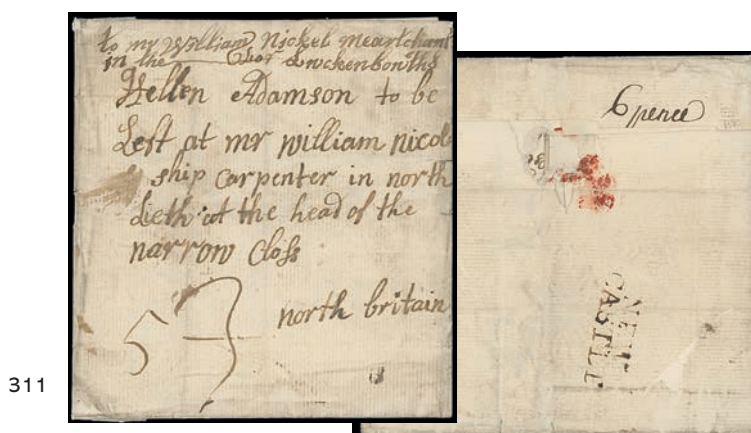 to mr William Nickel meartchant
in the
Hellen Adamson to be
Left at mr william nicol
ship carpenter in north
Lieth at the head of the
narrow Closs
north britain
6 pence
NEW
CASTLE
311